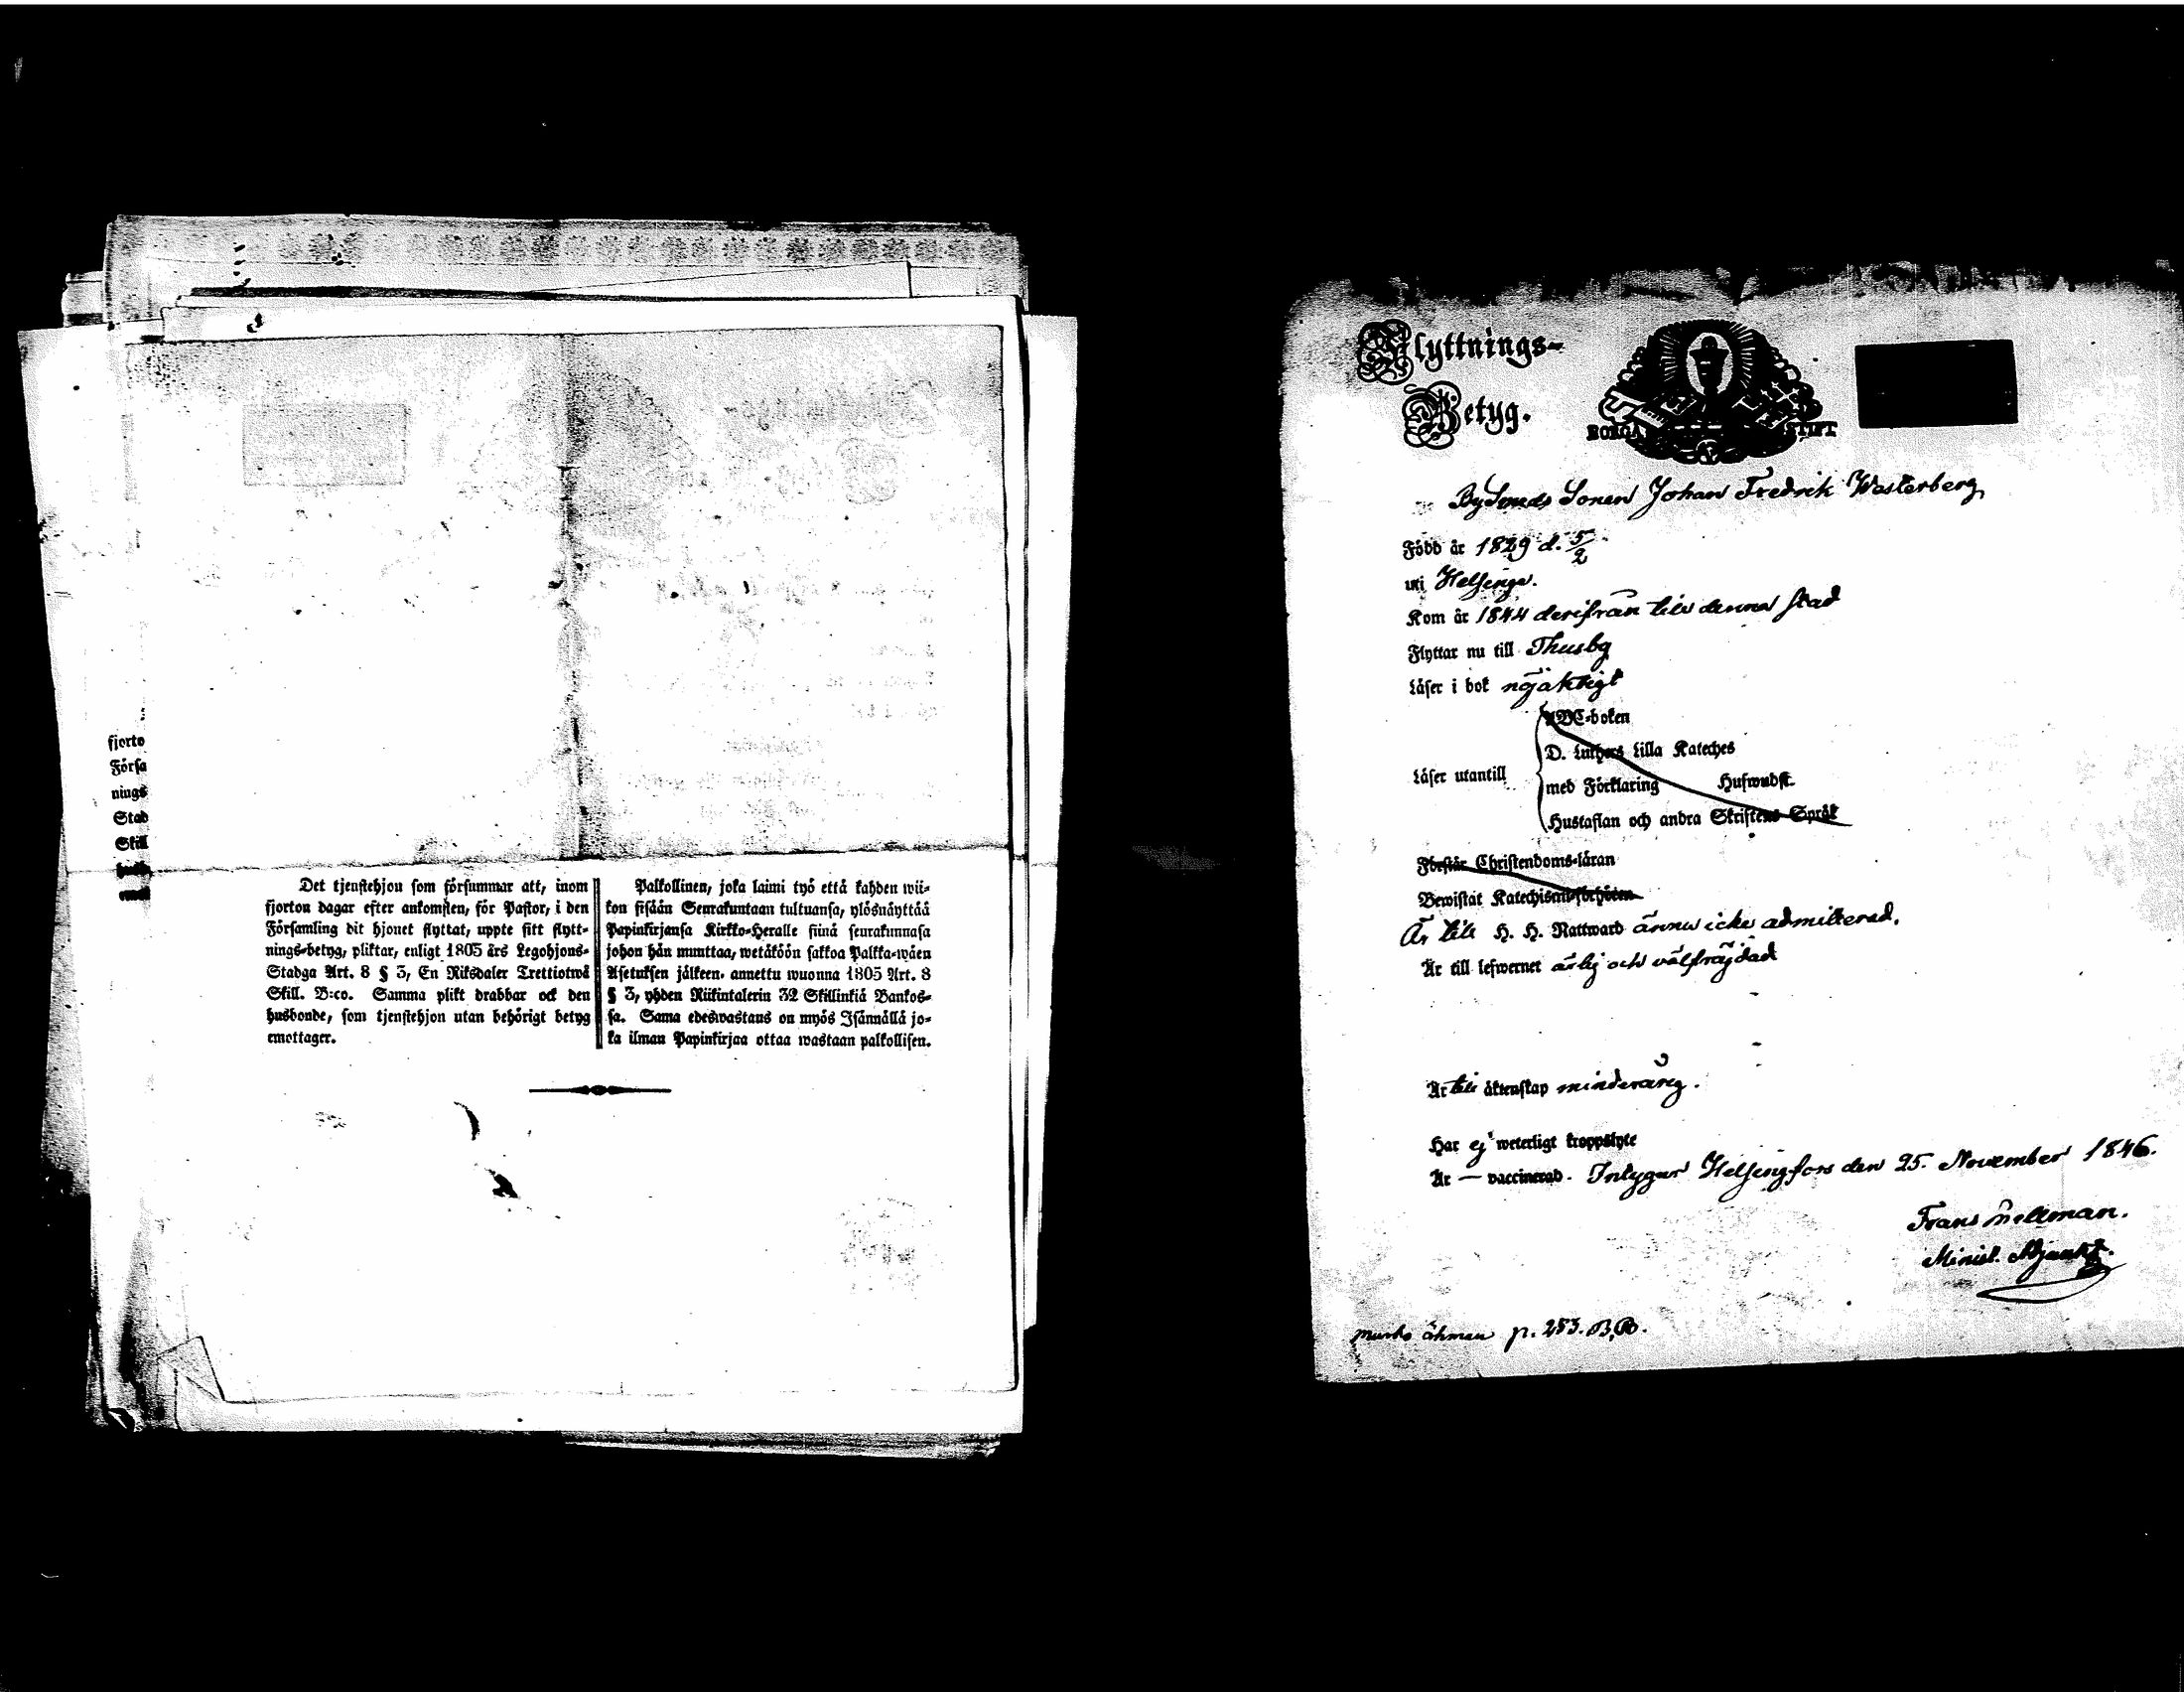 fjorto
Försa
nings
Stad
Skill
Det tjenstehjon som försummar att, inom
fjorton dagar efter ankomsten, för Pastor, i den
Församling dit hjonet flyttat, uppte sitt flytt-
nings-betyg, pliktar, enligt 1805 års Legohjons-
Stadga Art. 8 § 3, En Riksdaler Trettiotwå
Skill. B:co. Samma plikt drabbar ock den
husbonde, som tjenstehjon utan behörigt betyg
emottager.
Palkollinen, joka laimi työ että kahden wii-
kon sisään Seurakuntaan tultuansa, ylösnäyttää
Papinkirjansa Kirkko-Heralle siinä seurakunnasa
johon hän muuttaa, wetäköön sakkoa Palkka-wäen
Asetuksen jälkeen annettu wuonna 1805 Art. 8
§ 3, yhden Riikintalerin 32 Skillinkiä Bankos-
sa. Sama edeswastaus on myös Isännällä jo-
ka ilman Papinkirjaa ottaa wastaan palkollisen.
Flyttnings-
Betyg.
BORGÅ STIFT
By Smeds Sonen Johan Fredrik Westerberg
Född år 1829 d. 5/2
uti Helsinge.
Kom år 1844 derifrån till denna stad
Flyttar nu till Thusby
Läser i bok nöjaktigt
ABC-boken
D. Luthers Lilla Kateches
Läser utantill
med Förklaring Hufwudst.
Hustaflan och andra Skriftens Språk
Förstår Christendoms-läran
Bewistat Katechismi-förhören
Är till H. H. Nattward ännu icke admitterad.
Är till lefwernet ärlig och välfräjdad
Är till äktenskap minderårig.
Har ej weterligt kroppslyte
Är — vaccinerad. Intygar Helsingfors den 25. November 1846.
Frans Mellman.
Minist. Adjunkt.
p. 283. B,B.